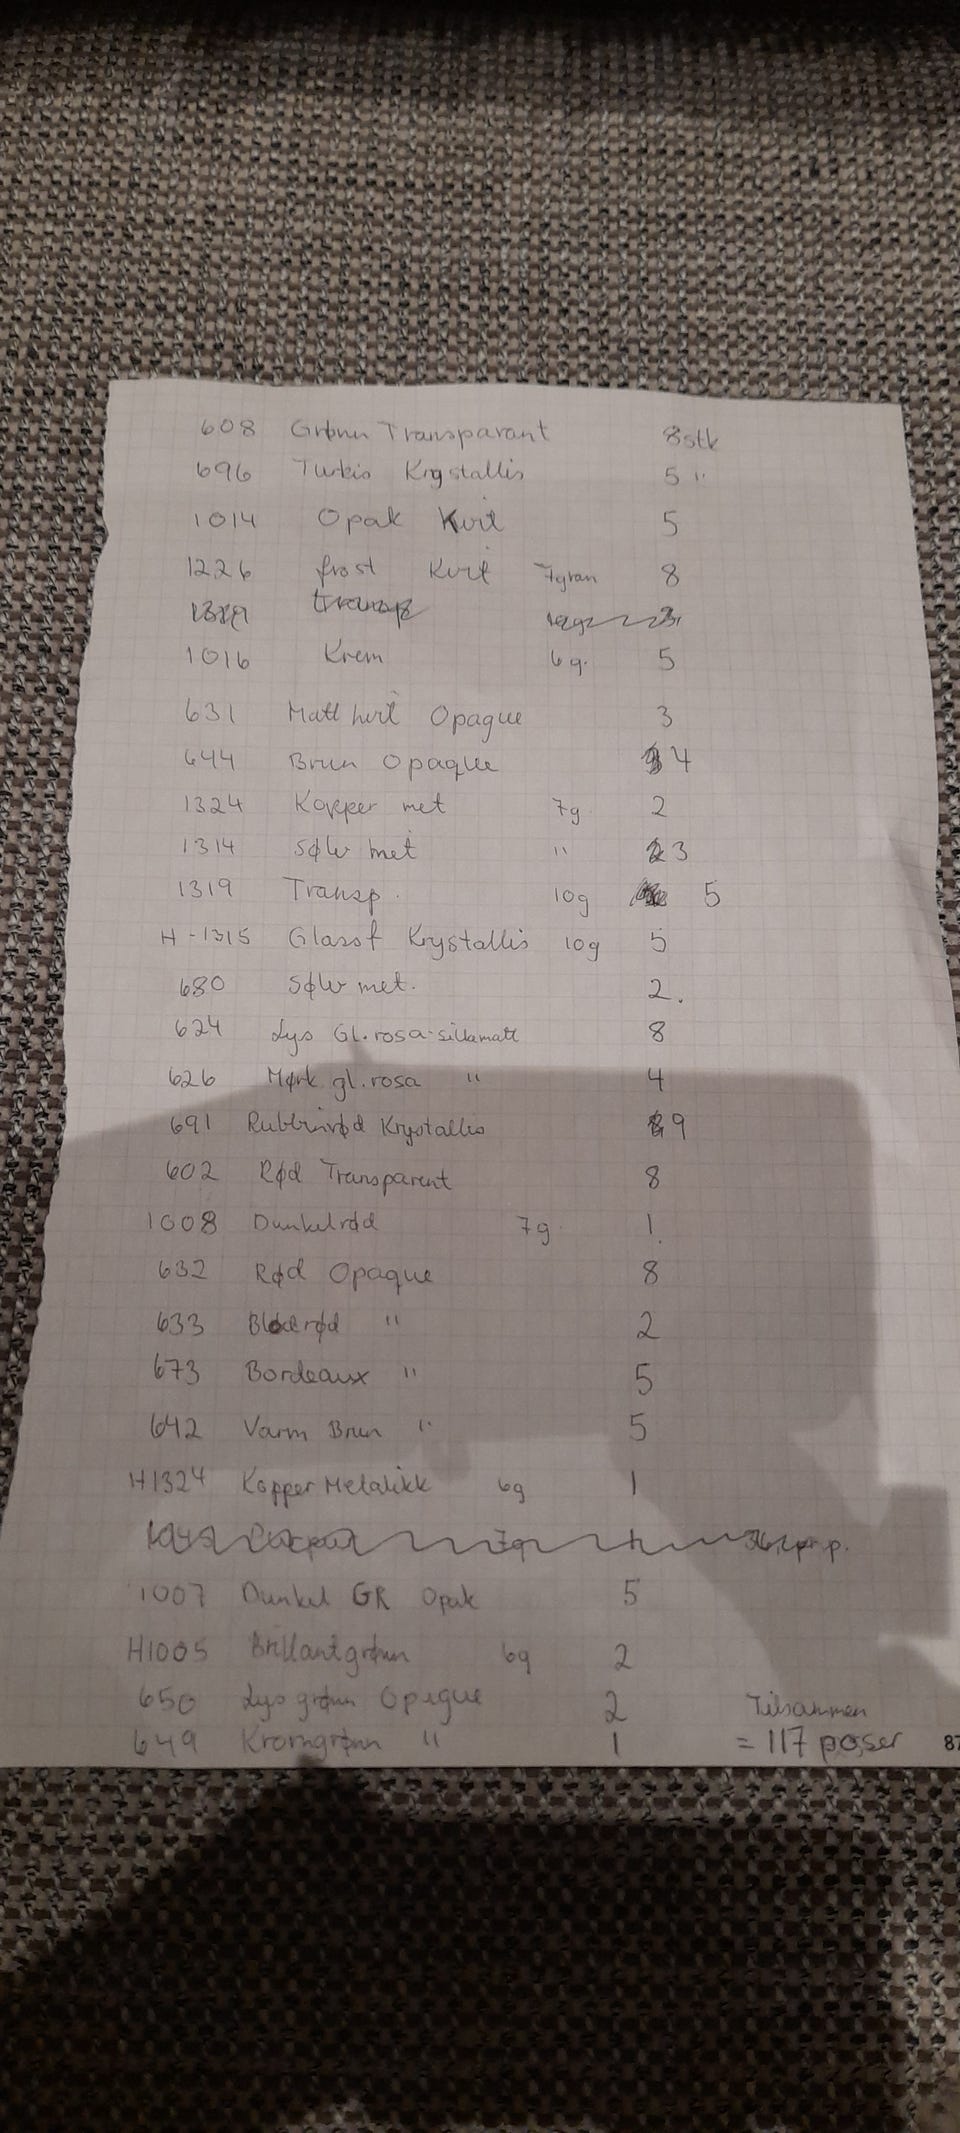 608 Grønn Transparant 8 stk
696 Turkis Krystallis 5 "
1014 Opak Kvit 5
1226 frost Kvit 7gram 8
1319 transp
1016 Krem 6g. 5
631 Matt hvit Opaque 3
644 Brun Opaque 4
1324 Kopper met 7g. 2
1314 Sølv met " 3
1319 Transp. 10g 5
H-1315 Glassf Krystallis 10g 5
680 Sølv met. 2.
624 Lys Gl.rosa-silkamatt 8
626 Mørk gl.rosa " 4
691 Rubbinrød Krystallis 9
602 Rød Transparent 8
1008 Dunkelrød 7g. 1.
632 Rød Opaque 8
633 Blodrød " 2
673 Bordeaux " 5
642 Varm Brun " 5
H1324 Kopper Metalikk 6g 1
1007 Dunkel GR Opak 5
H1005 Brillantgrønn 6g 2
650 Lys grønn Opaque 2 Tilsammen
649 Kromgrønn " 1 = 117 poser 87